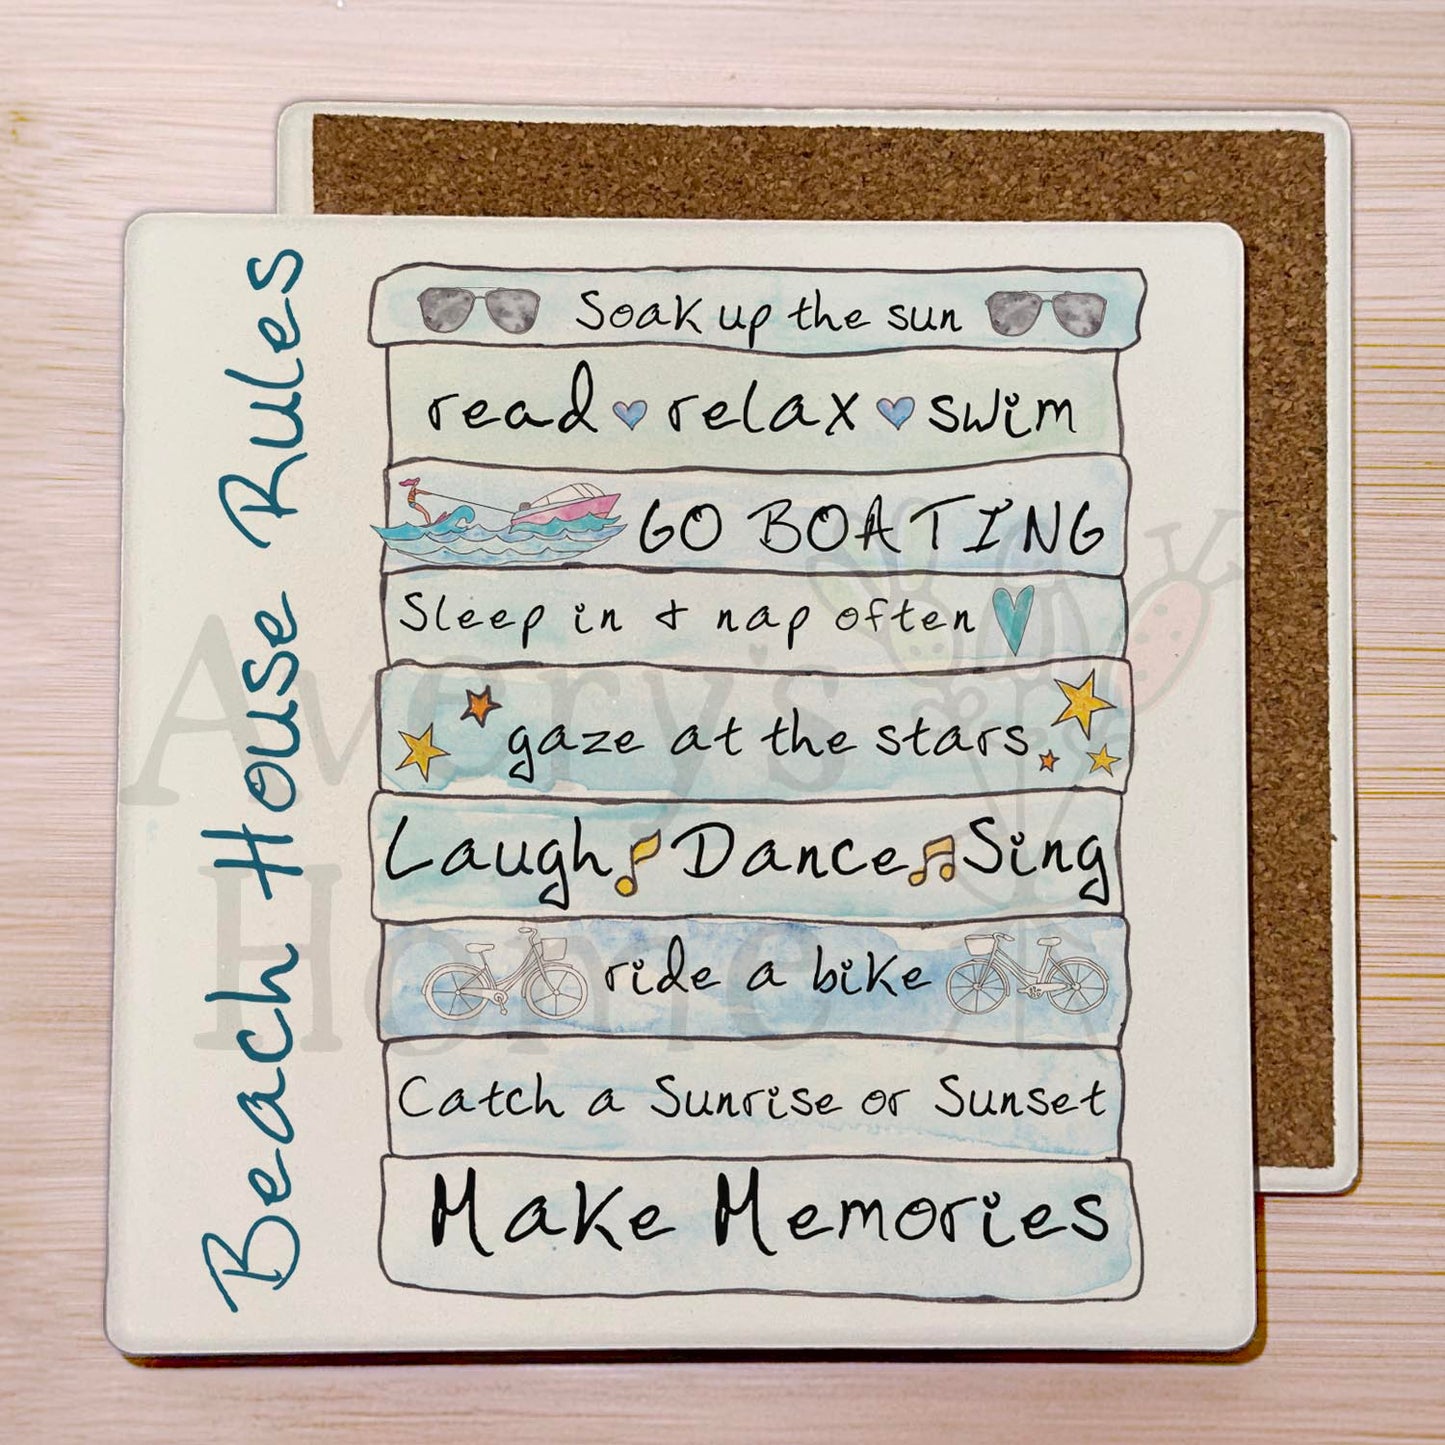 Beach House Rules
Soak up the sun
read relax swim
GO BOATING
Sleep in + nap often
gaze at the stars
Laugh Dance Sing
ride a bike
Catch a Sunrise or Sunset
Make Memories
Avery's
Home